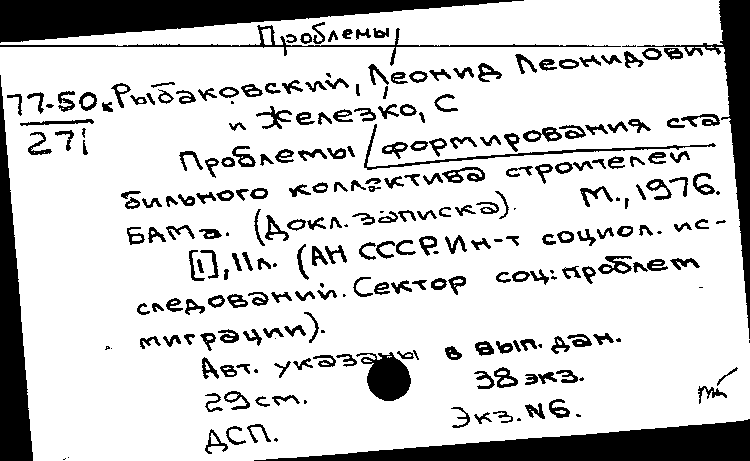 Проблемы
77-50 Рыбаковский, Леонид Леонидович
271 и Железко, С
Проблемы формирования ста-
бильного коллектива строителей
БАМа. (Докл. записка). М., 1976.
[1], 11л. (АН СССР. Ин-т социол. ис-
следований. Сектор соц. проблем
миграции).
Авт. указаны в вып. дан.
29 см. 38 экз.
ДСП. Экз. N6.